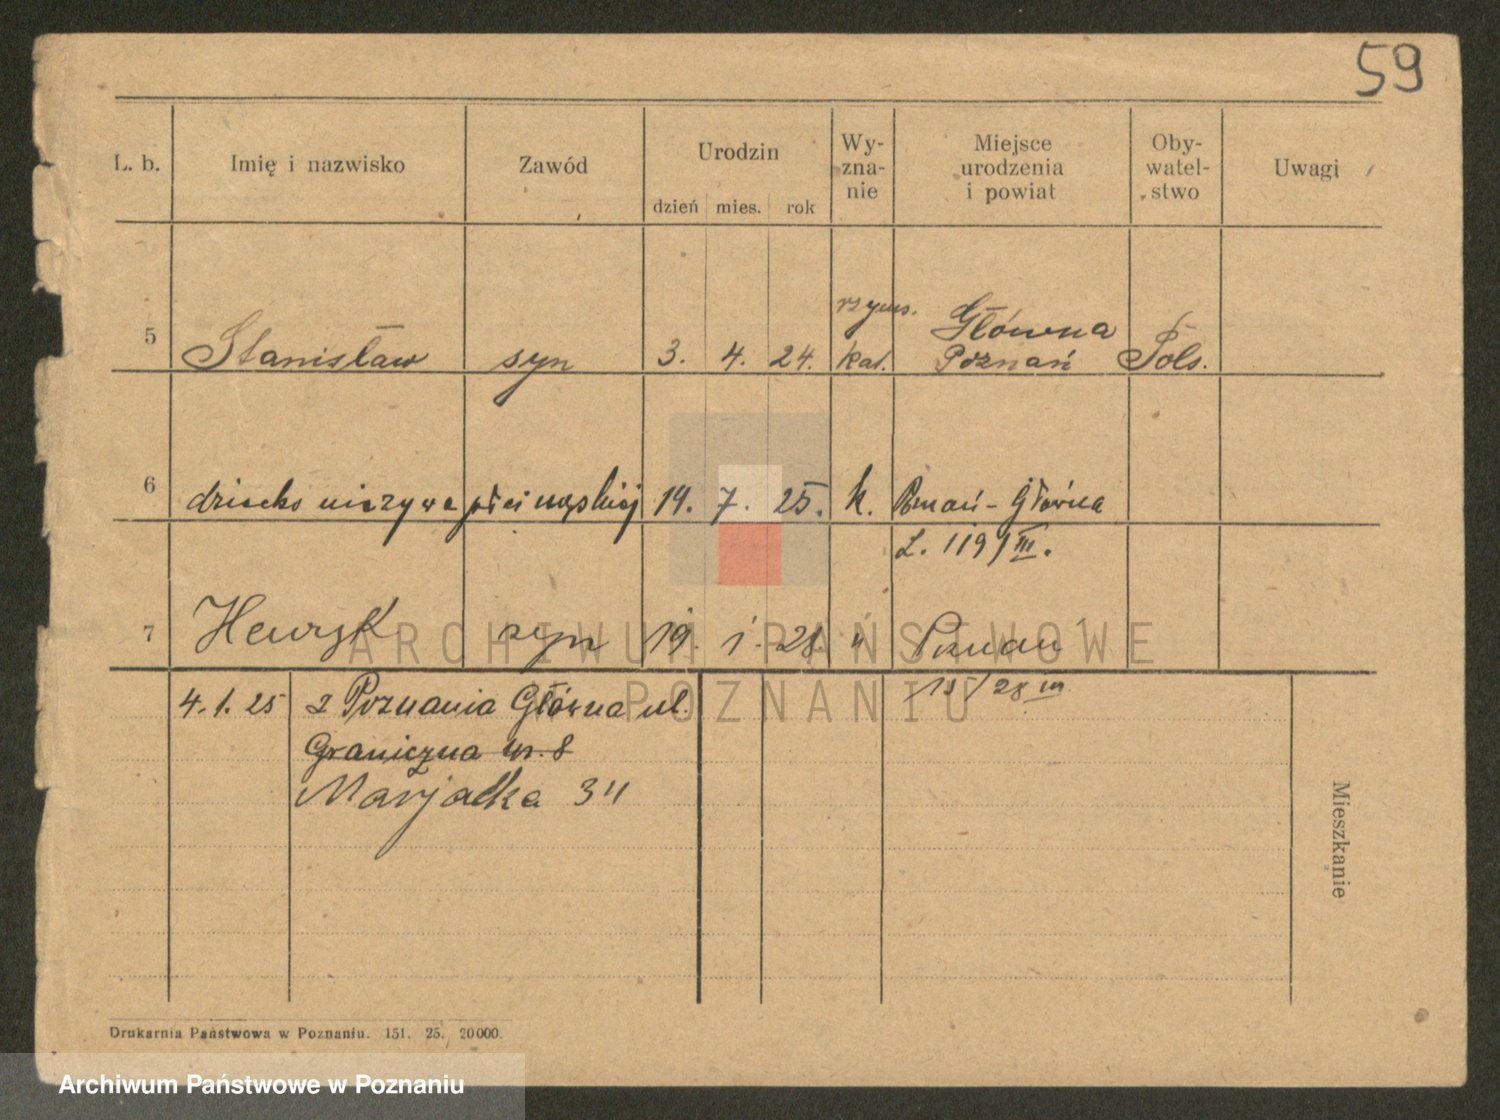 59
L. b. Imię i nazwisko Zawód Urodzin dzień mies. rok Wy-zna-nie Miejsce urodzenia i powiat Oby-watel-stwo Uwagi
rzyms. Główna
5 Stanisław syn 3. 4. 24. kat. Poznań Pols.
6 dziecko nieżywe płci męskiej 19. 7. 25. k. Poznań - Główna
L. 119/III.
7 Henryk syn 19. 1. 28. " Poznań
15/28 III
4.1.25 z Poznania Główna ul.
Graniczna nr. 8
34
Mieszkanie
ARCHIWUM PAŃSTWOWE
POZNANIU
Drukarnia Państwowa w Poznaniu. 151. 25. 20000.
Archiwum Państwowe w Poznaniu